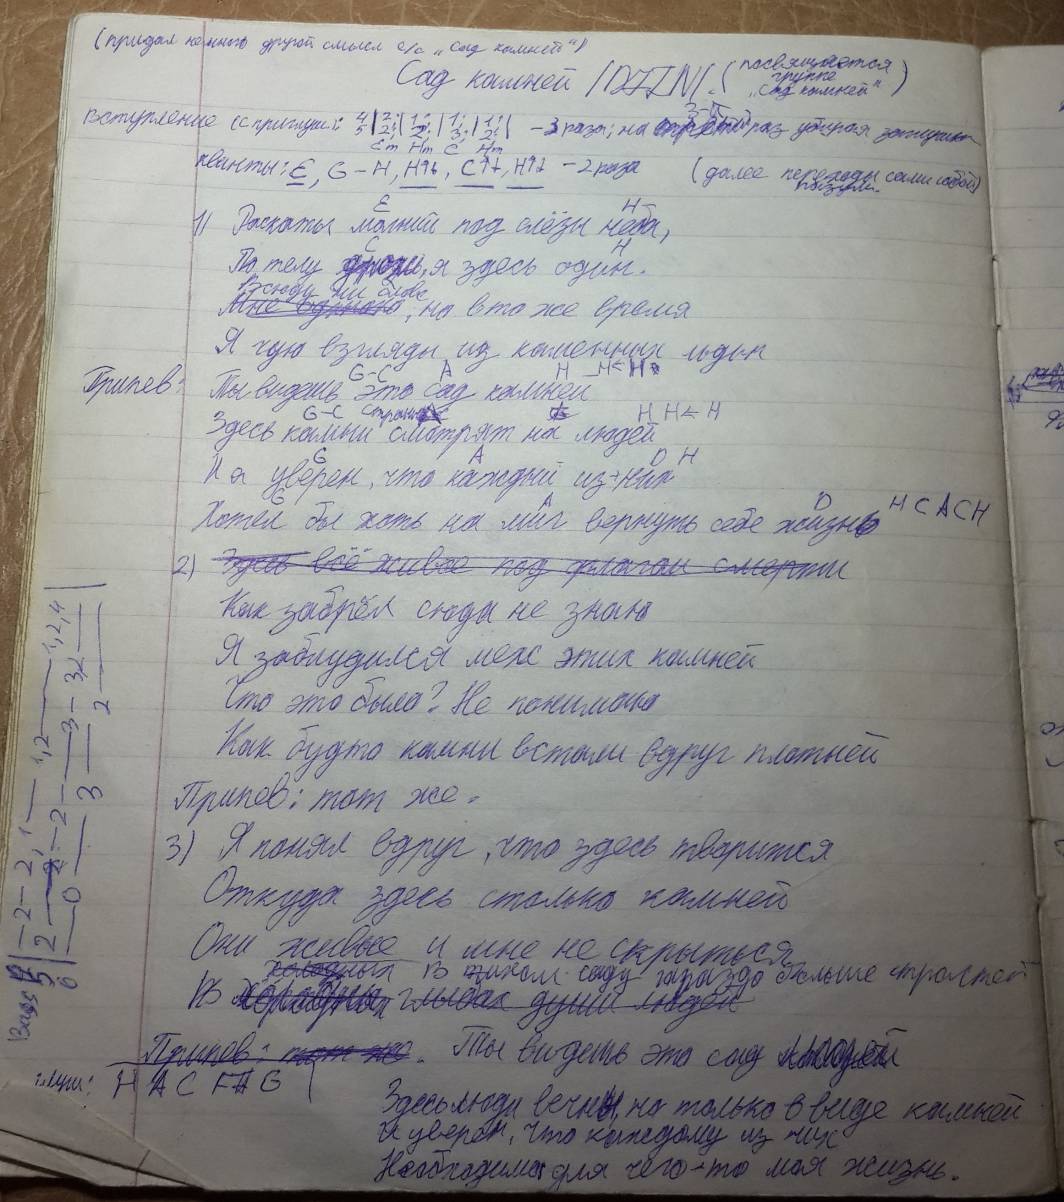 (придал немного другой смысл с/с „Сад камней“)
Сад камней (посвящается группе „Сад камней“)
Вступление 4 5 | 2: 2: | 1: 2: | 1: 3: | 1: 2: | - 3 раза; на раз убирая
Em Hm C Hm
кванты: E, G - H, H↑↓, C↑↓, H↑↓ - 2 раза (далее переходы сами собой)
E H
1) Раскаты молний под слёзы неба,
C H
По телу дрожь, я здесь один.
Всюду ни слова
Мне одиноко, но в то же время
Я чую взгляды из каменных льдин
G-C A H H<H
Припев: Ты видишь это сад камней
G-C H H< H
Здесь камни смотрят на людей
G A D H
И я уверен, что каждый из них
G A D H C A C H
Хотел бы хоть на миг вернуть себе жизнь
2) Здесь всё живое под флагом смерти
Как забрёл сюда не знаю
Я заблудился меж этих камней
Что это было? Не понимаю
Как будто камни встали вдруг плотней
Припев: тот же.
3) Я понял вдруг, что здесь творится
Откуда здесь столько камней
Они живые и мне не скрыться
холодных В тихом саду гораздо больше страстей
В глыбах души людей
Припев: тот же. Ты видишь это сад людей
H A C F A G
Здесь люди вечны, но только в виде камней
И уверен, что каждому из них
Необходима для чего-то моя жизнь.
4 | - 2 - 2, 1 — 1, 2 — 1, 2, 4
5 | 2 - 2 - 2 — 3 - 3, 2 — |
6 | — 0 — 3 — 2 — |